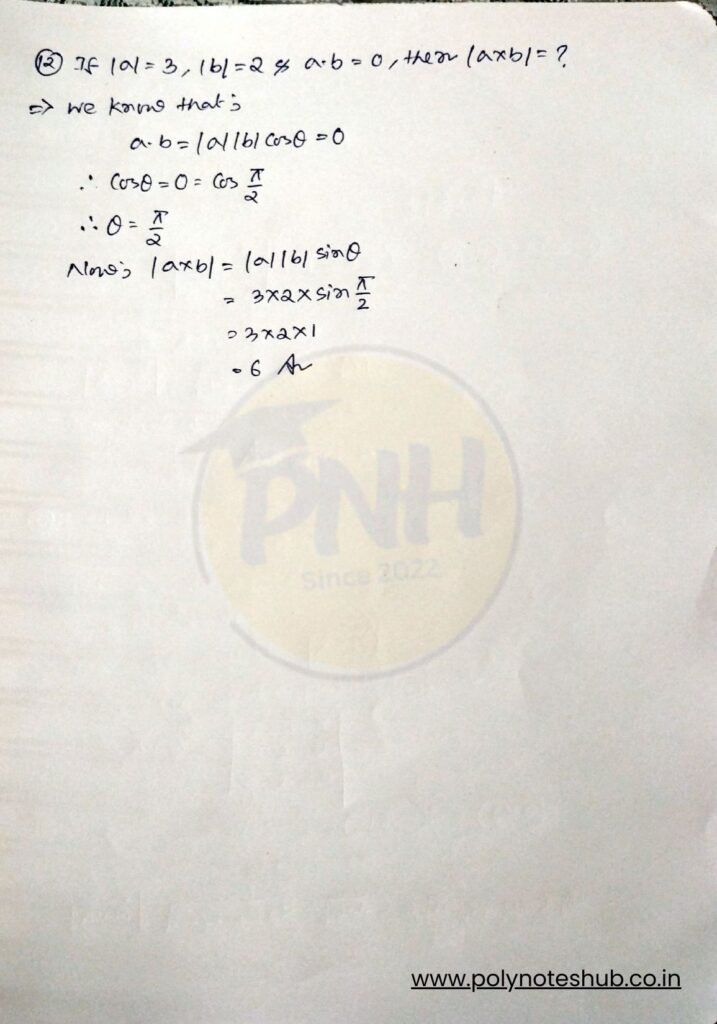 ⑫ If |a| = 3, |b| = 2 & a·b = 0, then |a×b| = ?
⇒ we know that;
a·b = |a||b| cosθ = 0
∴ cosθ = 0 = cos π/2
∴ θ = π/2
Now; |a×b| = |a||b| sinθ
= 3×2× sin π/2
= 3×2×1
= 6 Ans
PNH
Since 2022
www.polynoteshub.co.in